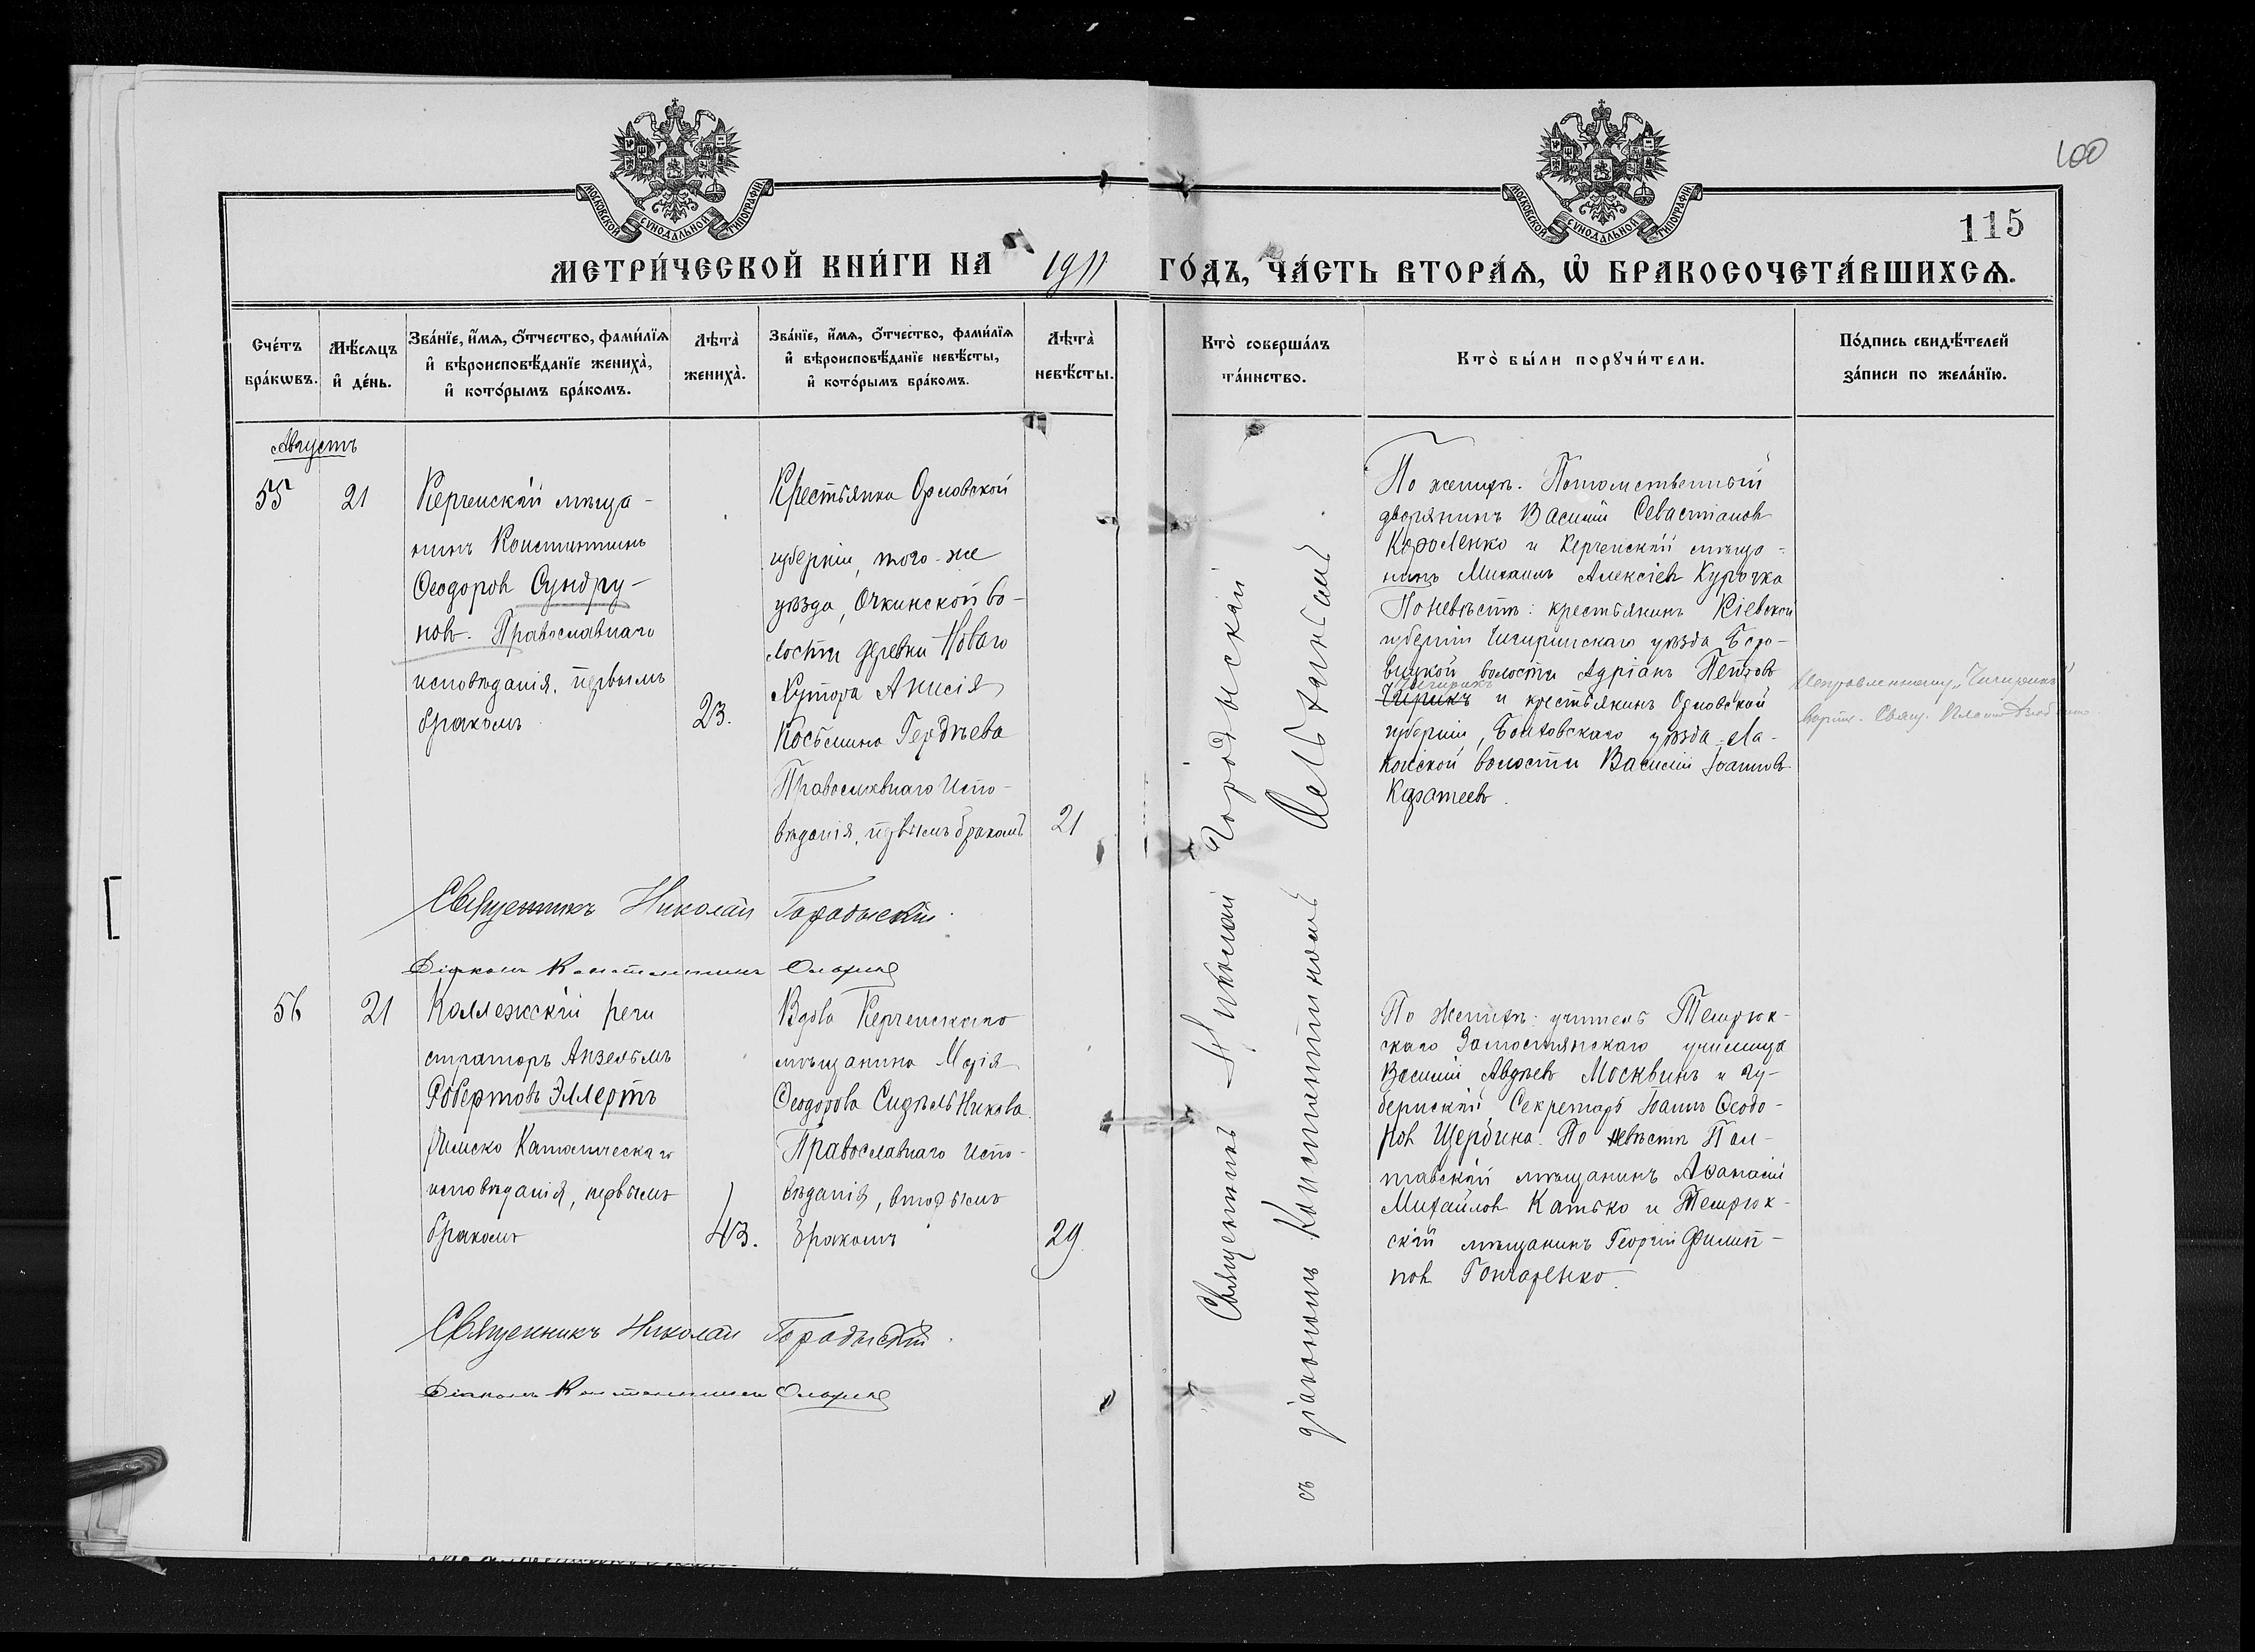 100
115
МОСКОВСКОЙ СѴНОДАЛЬНОЙ ТИПОГРАФІИ
МОСКОВСКОЙ СѴНОДАЛЬНОЙ ТИПОГРАФІИ
МЕТРИ́ЧЕСКОЙ КНИ́ГИ НА 1911 ГО́ДЪ, ЧА́СТЬ ВТОРА́Ѧ, Ѡ҆ БРАКОСОЧЕТА́ВШИХСѦ.
Сче́тъ
бра́кѡвъ.
Мѣ́сѧцъ
и҆ де́нь.
Зва́нїе, и҆́мѧ, о҆́тчество, фами́лїѧ
и҆ вѣроисповѣ́данїе жениха̀,
и҆ кото́рымъ бра́комъ.
Лѣта̀
жениха̀.
Зва́нїе, и҆́мѧ, о҆́тчество, фами́лїѧ
и҆ вѣроисповѣ́данїе невѣ́сты,
и҆ кото́рымъ бра́комъ.
Лѣта̀
невѣ́сты.
Кто̀ соверша́лъ
та́инство.
Кто̀ бы́ли порꙋчи́тели.
По́дпись свидѣ́телей
за́писи по жела́нїю.
Августъ
55
21
Керченскій мѣща-
нинъ Константинъ
Ѳеодоровъ Сундру-
новъ. Православнаго
исповѣданія, первымъ
бракомъ
23.
Крестьянка Орловской
губерніи, того-же
уѣзда, Очкинской во-
лости деревни Новаго
Хутора Анисія
Косьмина Гордѣева
Православнаго Испо-
вѣданія, первымъ бракомъ
21
Священникъ Николай Городыскій
съ діакономъ Константиномъ
По женихѣ: Потомственный
дворянинъ Василій Севастіановъ
Короленко и Керченскій мѣща-
нинъ Михаилъ Алексіевъ Курочка
По невѣстѣ: крестьянинъ Кіевской
губерніи Чигиринскаго уѣзда Боро-
вицкой волости Адріанъ Петровъ
Чигирикъ
Чирикъ и крестьянинъ Орловской
губерніи, Болховскаго уѣзда Ла-
конской волости Василій Іоанновъ
Каратеевъ.
Исправленному „Чигирикъ"
вѣрить. Свящ.
Священникъ Николай Городыскій
Діаконъ Константинъ
56
21
Коллежскій реги
страторъ Анзельмъ
Робертовъ Эллертъ
Римско Католическаго
исповѣданія, первымъ
бракомъ
43.
Вдова Керченскаго
мѣщанина Марія
Ѳеодорова Сидѣльникова
Православнаго испо-
вѣданія, вторымъ
бракомъ
29
По женихѣ: учитель Темрюк-
скаго Замостянскаго училища
Василій Авдѣевъ Москвинъ и Гу-
бернскій Секретарь Іоаннъ Ѳеодо-
ровъ Щербина. По невѣстѣ Пол-
тавскій мѣщанинъ Аѳанасій
Михайловъ Катько и Темрюк-
скій мѣщанинъ Георгій Филип-
повъ Гончаренко.
Священникъ Николай Городыскій
Діаконъ Константинъ